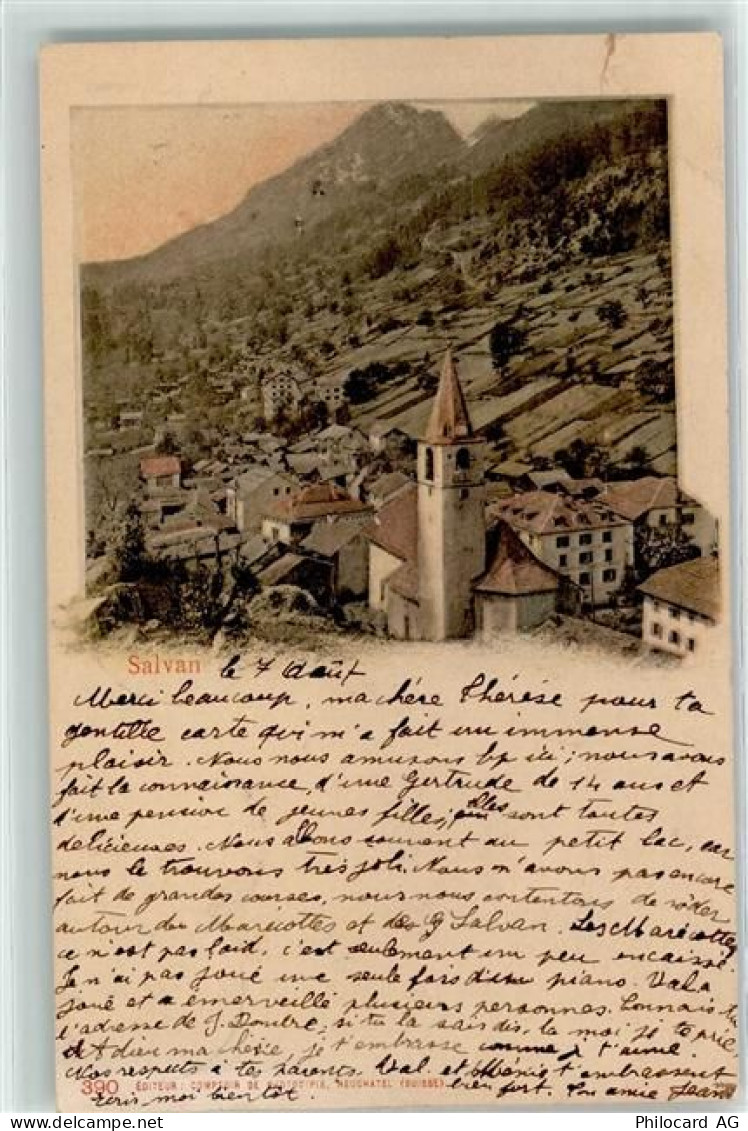 Salvan le 7 Août
Merci beaucoup, ma chére Thérése pour ta
gentille carte qui m'a fait un immense
plaisir. Nous nous amusons bp ici; nous avons
fait la connaissance, d'une Gertrude de 14 ans et
d'une pension de jeunes filles; elles sont toutes
delicieuses. Nous allons souvent au petit lac, car
nous le trouvons très joli. Nous n'avons pas encore
fait de grandes courses, nous nous contentons de rôder
autour des Marécottes et de Salvan. Les Marécottes
ce n'est pas laid, c'est seulement un peu encaissé.
Je n'ai pas joué une seule fois du piano. Val a
joué et a émerveillé plusieurs personnes. Connais-tu
l'adresse de J. Doutre, si tu la sais dis, la moi je te prie,
et Adieu ma chérie, je t'embrasse comme je t'aime.
Nos respects à tes parents. Val. et t'embrassent
390 ÉDITEUR: COMPTOIR DE PHOTOTYPIE, NEUCHATEL (SUISSE) bien fort. Ton amie Jean
Ecris moi bientôt.
www.delcampe.net
Philocard AG